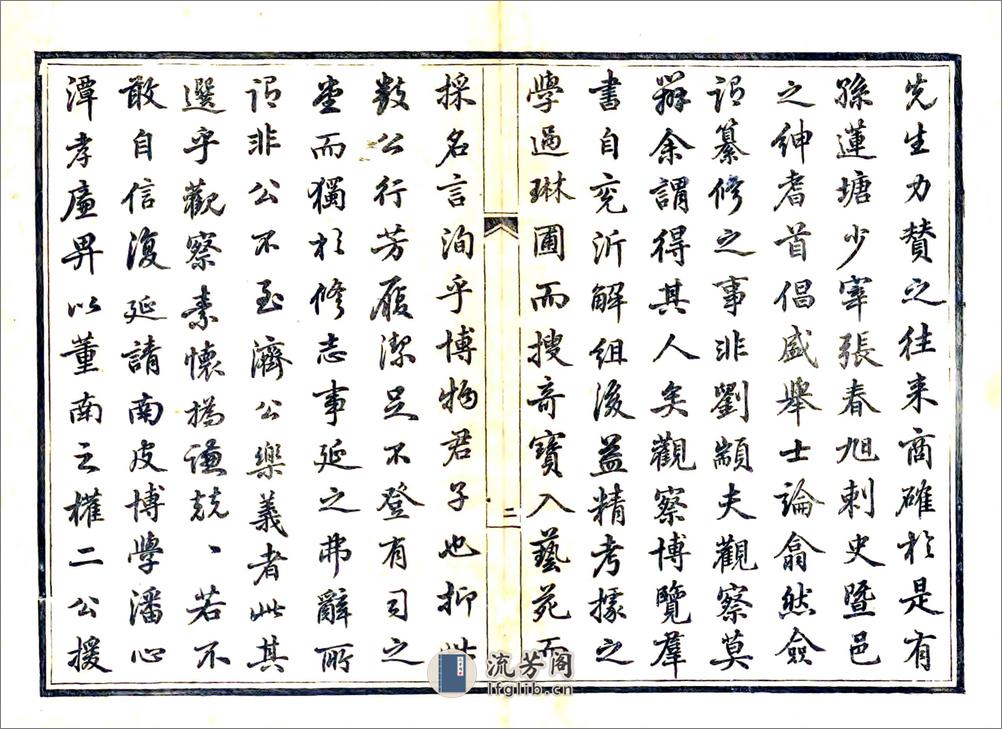 先生力贊之往来商確扵是有
孫蓮塘少宰張春旭刺史暨邑
之紳耆首倡盛舉士論翕然僉
謂纂修之事非劉顓夫觀察莫
辦余謂得其人矣觀察博覽羣
書自兖沂解組後益精考據之
學過琳圃而搜奇寶入藝苑而
二
採名言洵乎博物君子也抑
數公行芳履潔足不登有司之
堂而獨扵修志事延之弗辭所
謂非公不至濟公樂義者此其
選乎觀察素懷撝謙兢、若不
敢自信復延請南皮博學潘心
潭孝廉畀以董南之權二公援
流芳阁
lfglib.cn